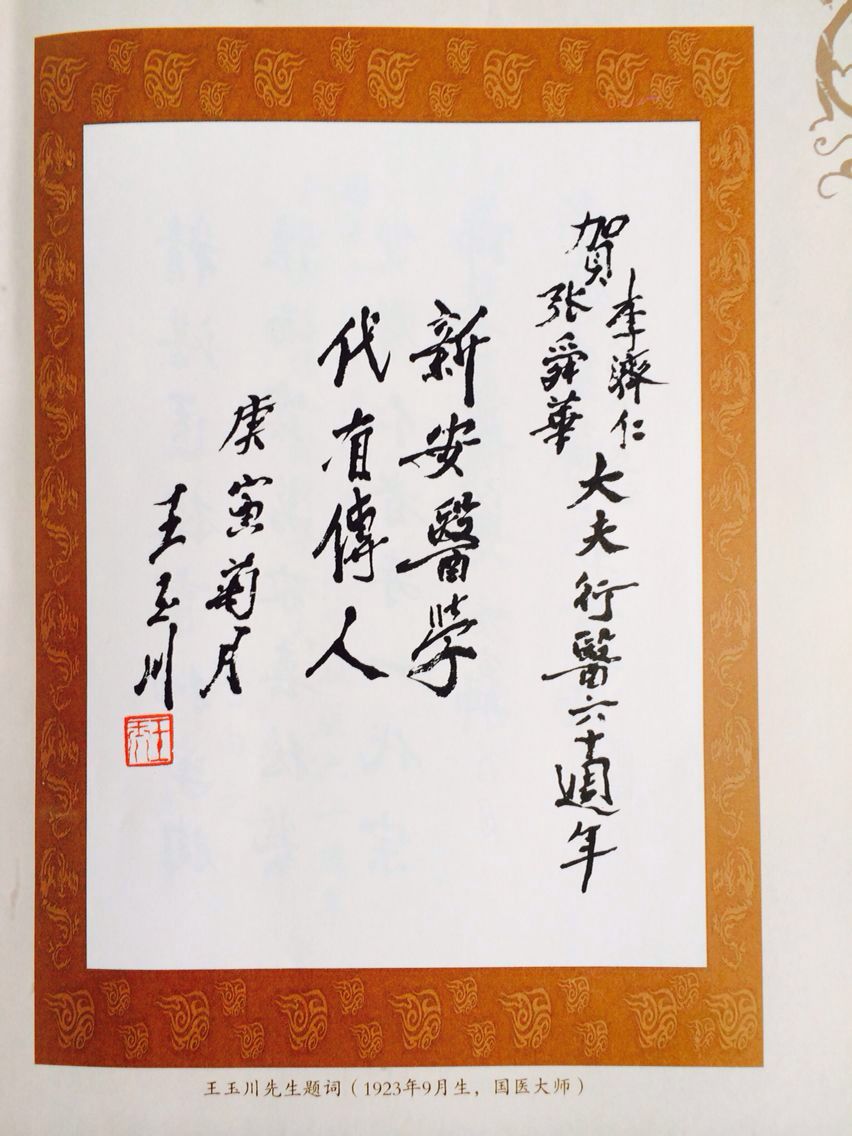 賀李濟仁張舜華大夫行醫六十週年
新安醫學
代有傳人
庚寅菊月
王玉川
王玉川先生题词（1923年9月生，国医大师）